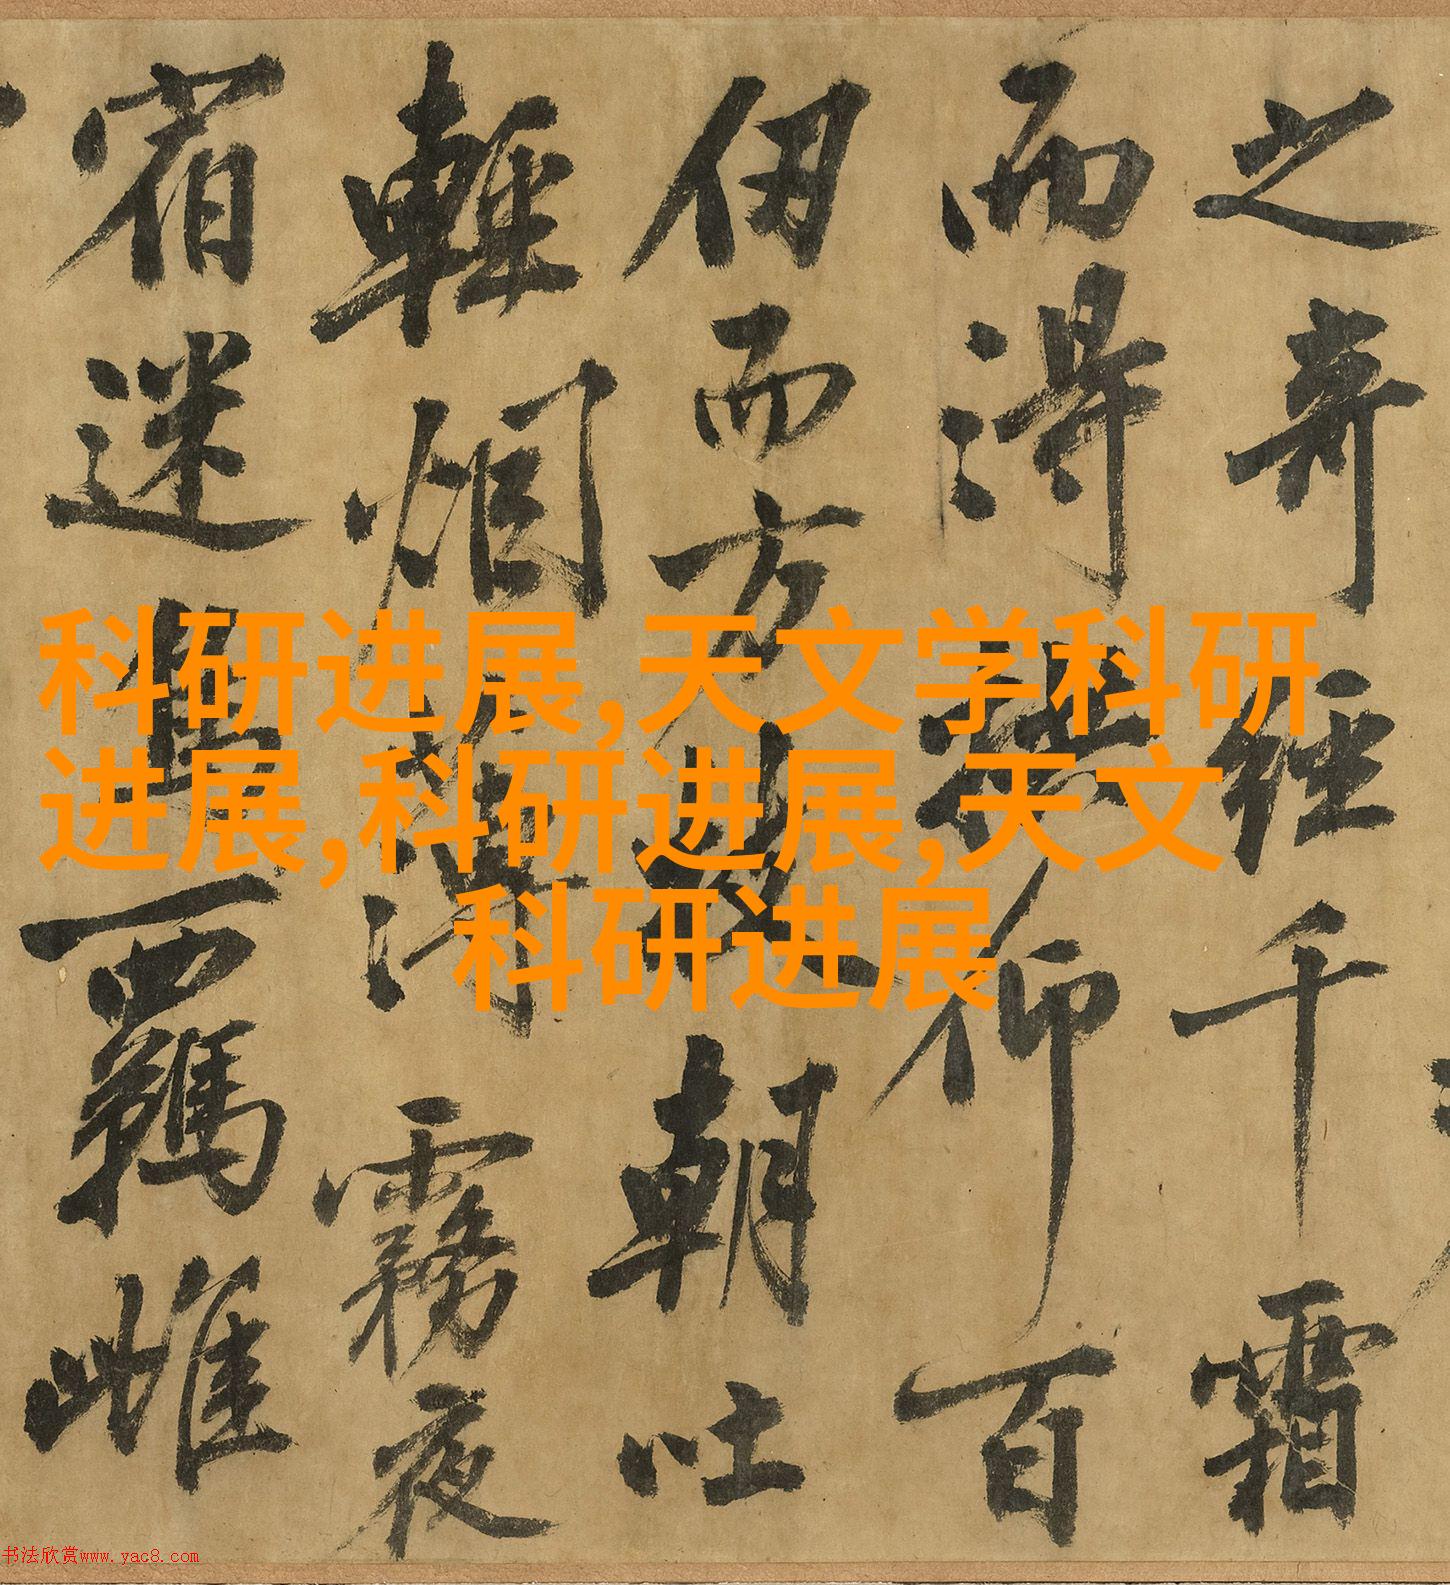 之奇經千霜
而得拱仰百
仞而方枝朝吐
輕烟薄霧夜
宿迷鳥羈雌
科研进展,天文学科研
进展,科研进展,天文
科研进展
书法欣赏www.yac8.com